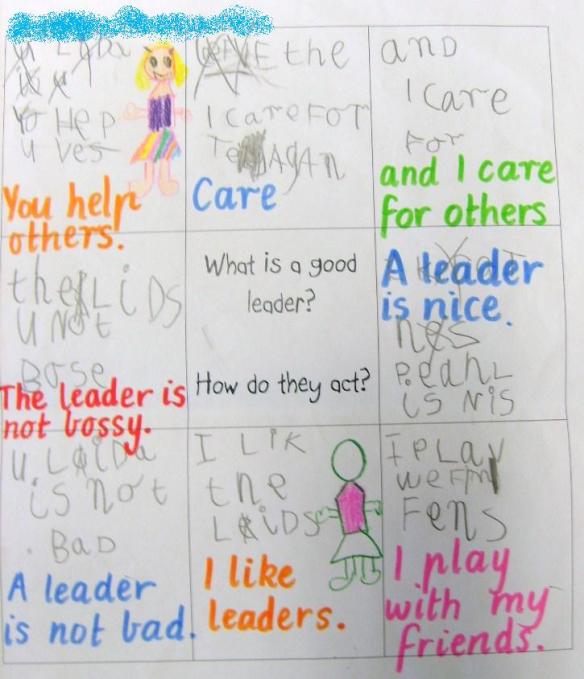 YO HEP
U VES
You help
others.
the
I CARE FOT
Care
and
I Care
For
and I care
for others
the LiDS
U NOt
BOSE
The leader is
not bossy.
What is a good
leader?
How do they act?
A leader
is nice.
is Nis
U LaiDa
is not
BAD
A leader
is not bad.
I LiK
the
LaiDS
I like
leaders.
I PLAY
FENS
I play
with my
friends.